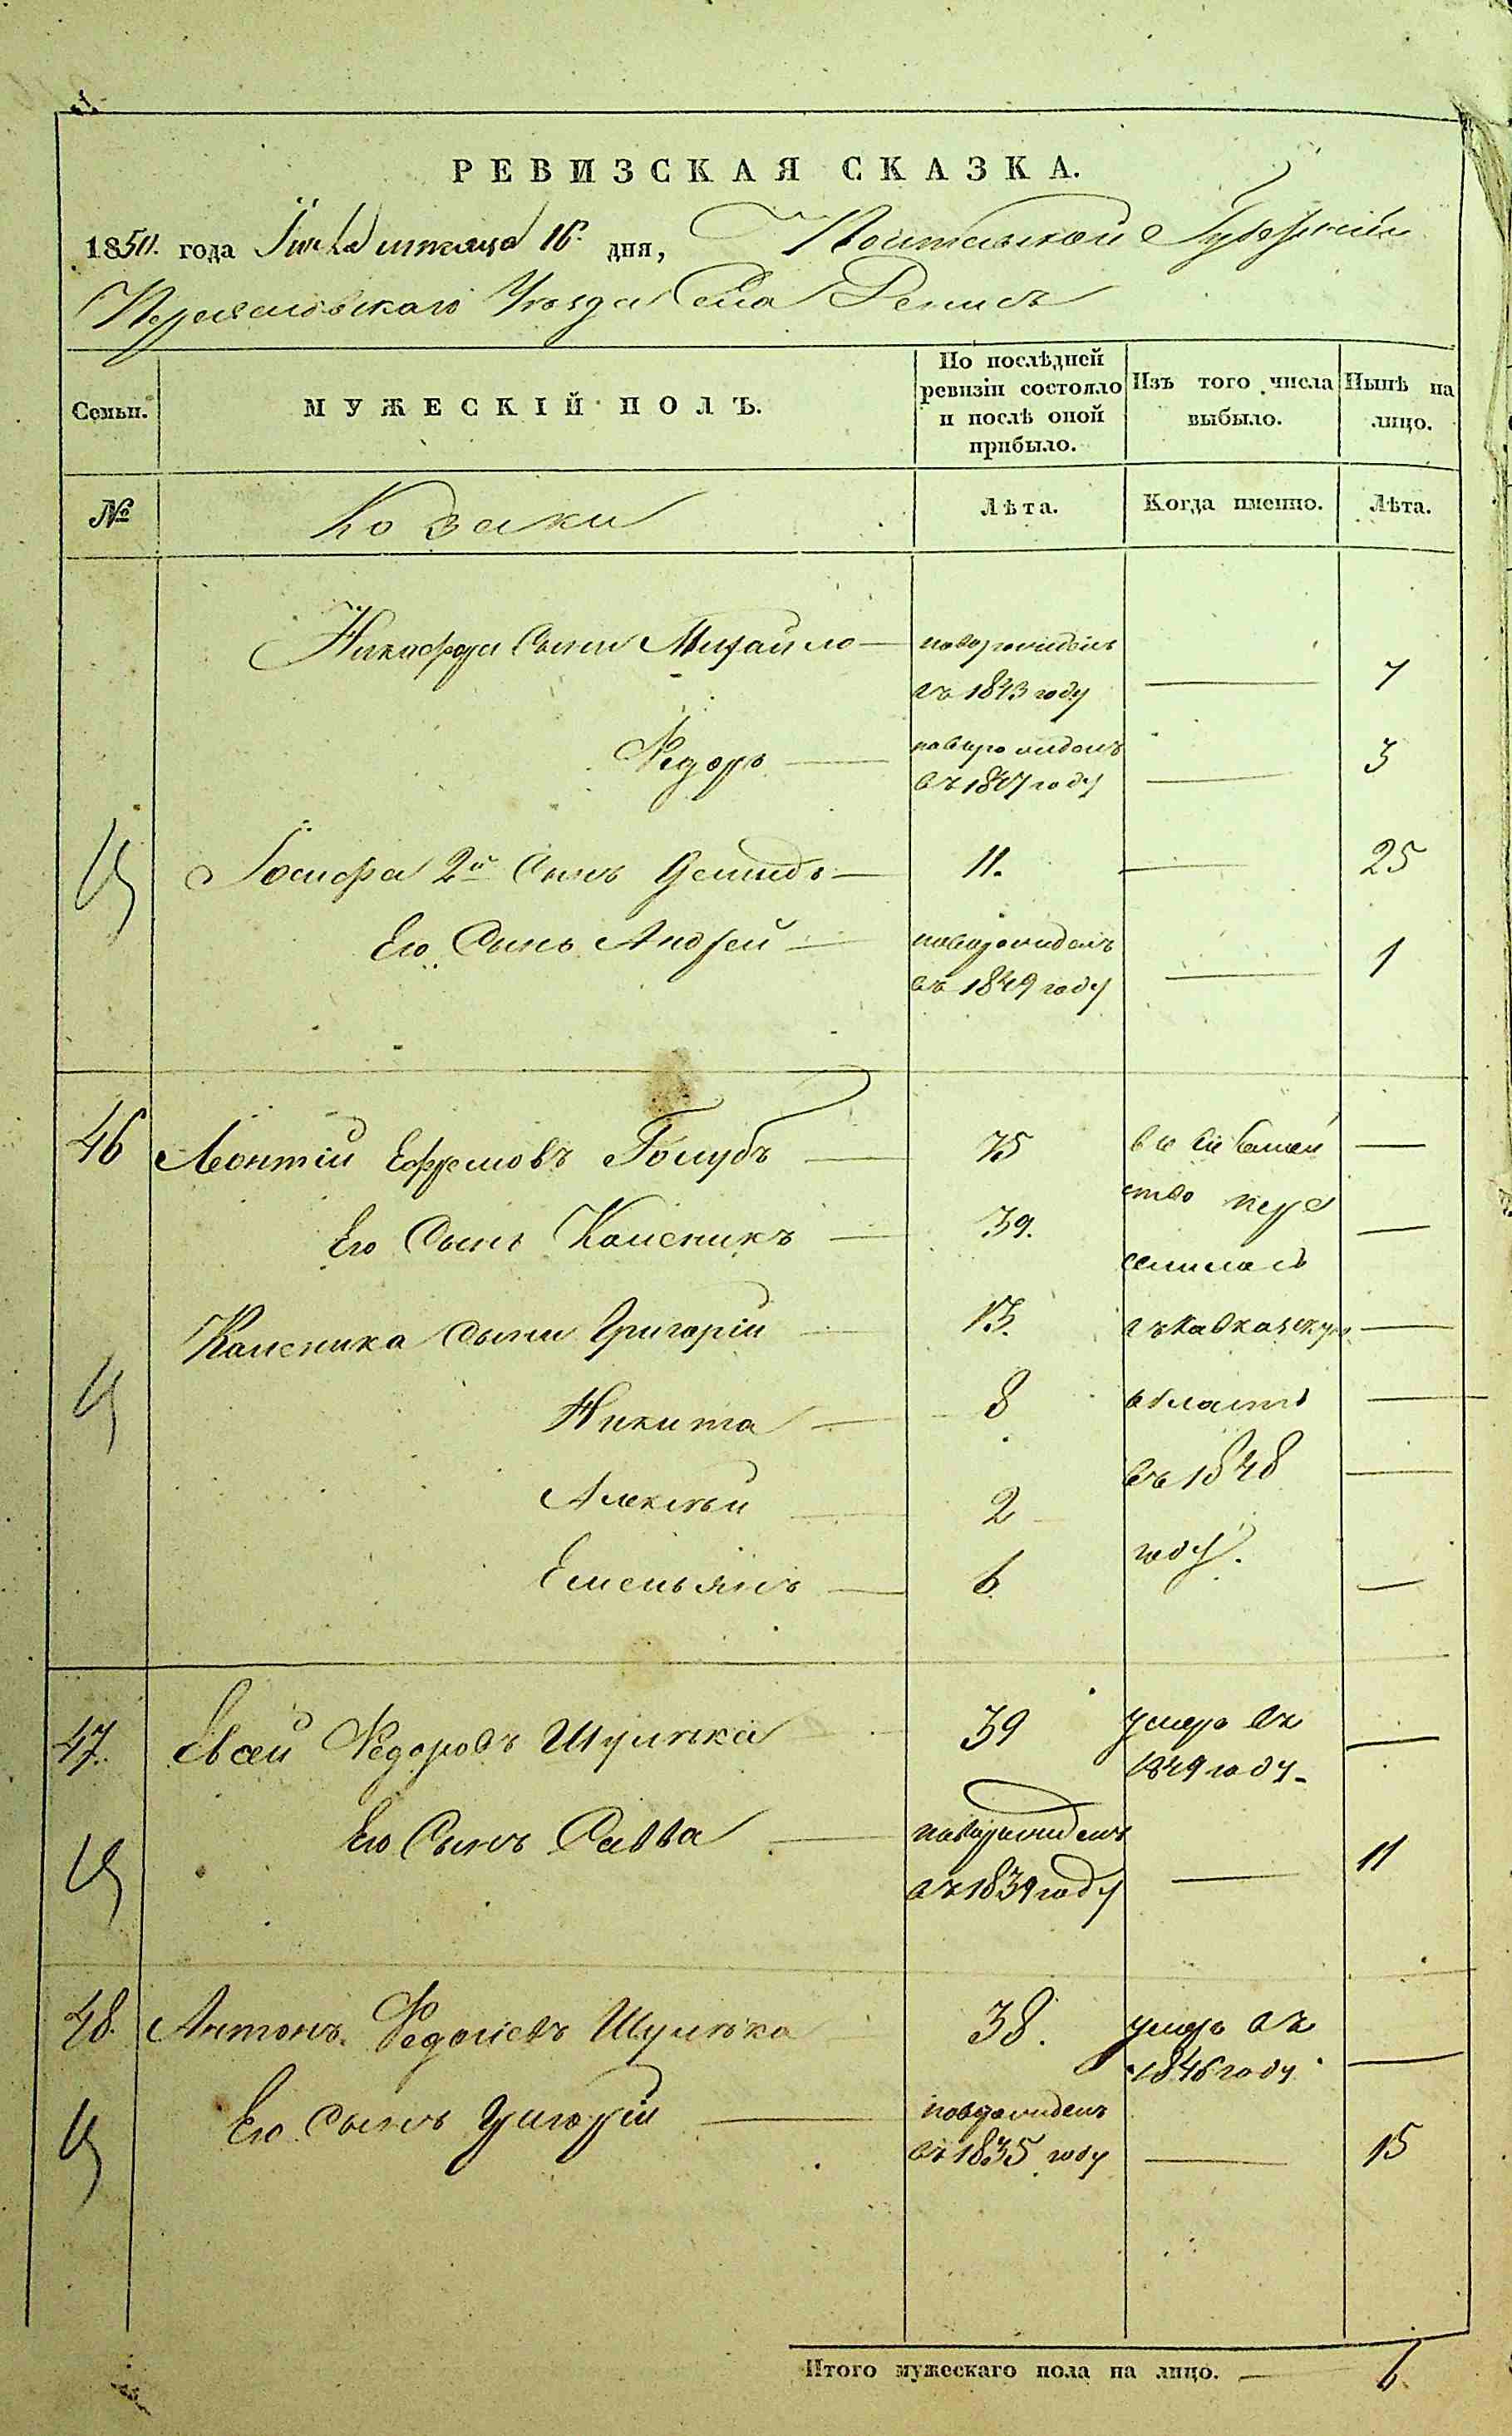 РЕВИЗСКАЯ СКАЗКА.
1850. года Іюля месяца 16. дня, Полтавской Губерніи
Переяславскаго Уезда Села
Семьи.
МУЖЕСКІЙ ПОЛЪ.
По послѣдней ревизіи состояло и послѣ оной прибыло.
Изъ того числа выбыло.
Нынѣ на лицо.
№
Козаки
Лѣта.
Когда именно.
Лѣта.
Никифора Сыни Михайло — новорожденъ
въ 1843 году — 7
Федоръ — новорожденъ
въ 1847 году — 3
Іосифа 2й Сынъ Демидъ — 11. — 25
Его Сынъ Андрей — новорожденъ
въ 1849 году — 1
46 Леонтій Ефремовъ Голубъ — 75 —
Его Сынъ Каленикъ — 39. —
Каленика Сыни Григорій — 13. —
Никита — 8 —
Алексѣй — 2 —
Емельянъ — 6 —
пере
селилась
въ Кавказскую
область
въ 1848
году.
47. Евсей Федоровъ Шулика 39 умеръ въ
1849 году —
Его Сынъ Савва — новорожденъ
въ 1839 году — 11
48. Антонъ Шулика 38. умеръ въ
1846 году —
Его Сынъ Григорій — новорожденъ
въ 1835 году — 15
Итого мужескаго пола на лицо. — 6